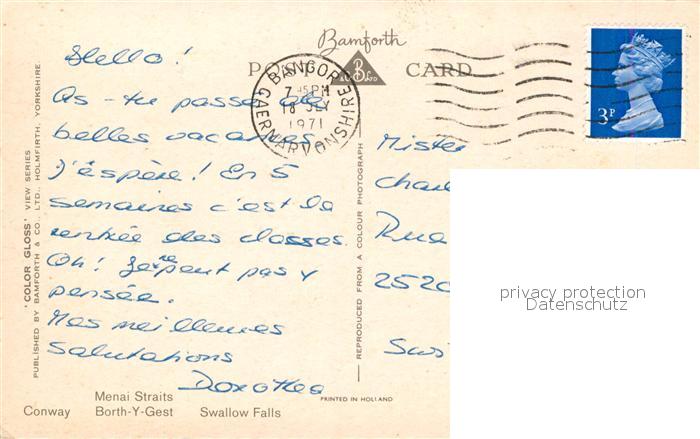 Bamforth
POST CARD
BANGOR
CAERNARVONSHIRE
7 45 PM
18 JLY
1971
3P
'COLOR GLOSS' VIEW SERIES
PUBLISHED BY BAMFORTH & CO., LTD., HOLMFIRTH, YORKSHIRE
Hello !
As-tu passé de
belles vacances,
J'éspère ! En 5
semaines c'est la
rentrée des classes.
Oh ! Je ne peut pas y
pensée.
Mes meilleures
salutations
Dorothea
REPRODUCED FROM A COLOUR PHOTOGRAPH
Mister
Rue
2520
privacy protection
Datenschutz
PRINTED IN HOLLAND
Menai Straits
Conway Borth-Y-Gest Swallow Falls